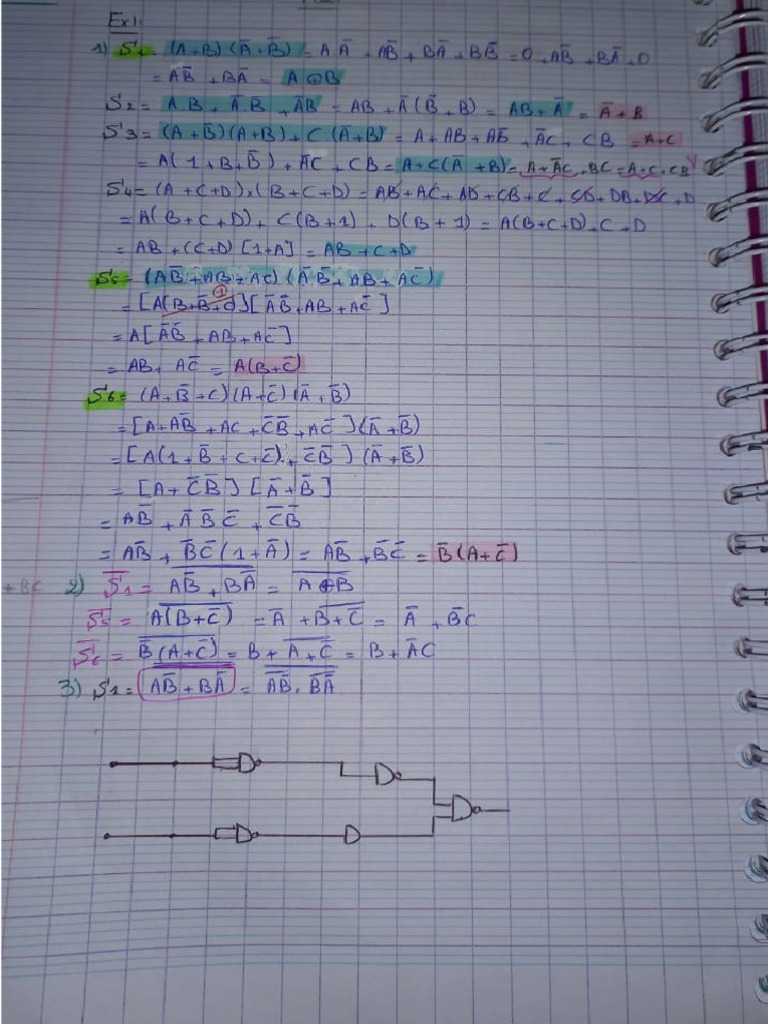 Ex1.
1) S1 = (A+B) (A̅+B̅) = A A̅ + AB̅ + BA̅ + BB̅ = 0 + AB̅ + BA̅ + 0
= AB̅ + BA̅ = A ⊕ B
S2 = A.B + A̅.B̅ + A̅B = AB + A̅(B̅+B) = AB + A̅ = A̅ + B
S3 = (A+B̅)(A+B) + C(A̅+B) = A + AB + AB̅ + A̅C + CB = A+C
= A(1+B+B̅) + A̅C + CB = A+C(A̅+B) = A+A̅C+BC = A+C+CB
S4 = (A+C+D)×(B+C+D) = AB+AC+AD+CB+C+CD+DB+DC+D
= A(B+C+D) + C(B+1) + D(B+1) = A(B+C+D)+C+D
= AB + (C+D) [1+A] = AB+C+D
S5 = (AB̅+AB+AC) (A̅B̅+AB+AC̅)
= [A(B+B̅+C)] [A̅B̅+AB+AC̅] 1
= A[A̅B̅+AB+AC̅]
= AB + AC̅ = A(B+C̅)
S6 = (A+B̅+C)(A+C̅)(A̅+B̅)
= [A+AB̅+AC+C̅B̅+AC̅](A̅+B̅)
= [A(1+B̅+C+C̅)+C̅B̅](A̅+B̅)
= [A+C̅B̅] [A̅+B̅]
= AB̅ + A̅B̅C̅ + C̅B̅
= AB̅ + B̅C̅(1+A̅) = AB̅ + B̅C̅ = B̅(A+C̅)
+BC 2) S̅1 = \overline{AB̅+BA̅} = \overline{A⊕B}
S̅5 = \overline{A(B+C̅)} = A̅ + \overline{B+C̅} = A̅ + B̅C
S̅6 = \overline{B̅(A+C̅)} = B + \overline{A+C̅} = B + A̅C
3) S1 = \overline{\overline{AB̅+BA̅}} = \overline{\overline{AB̅}.\overline{BA̅}}